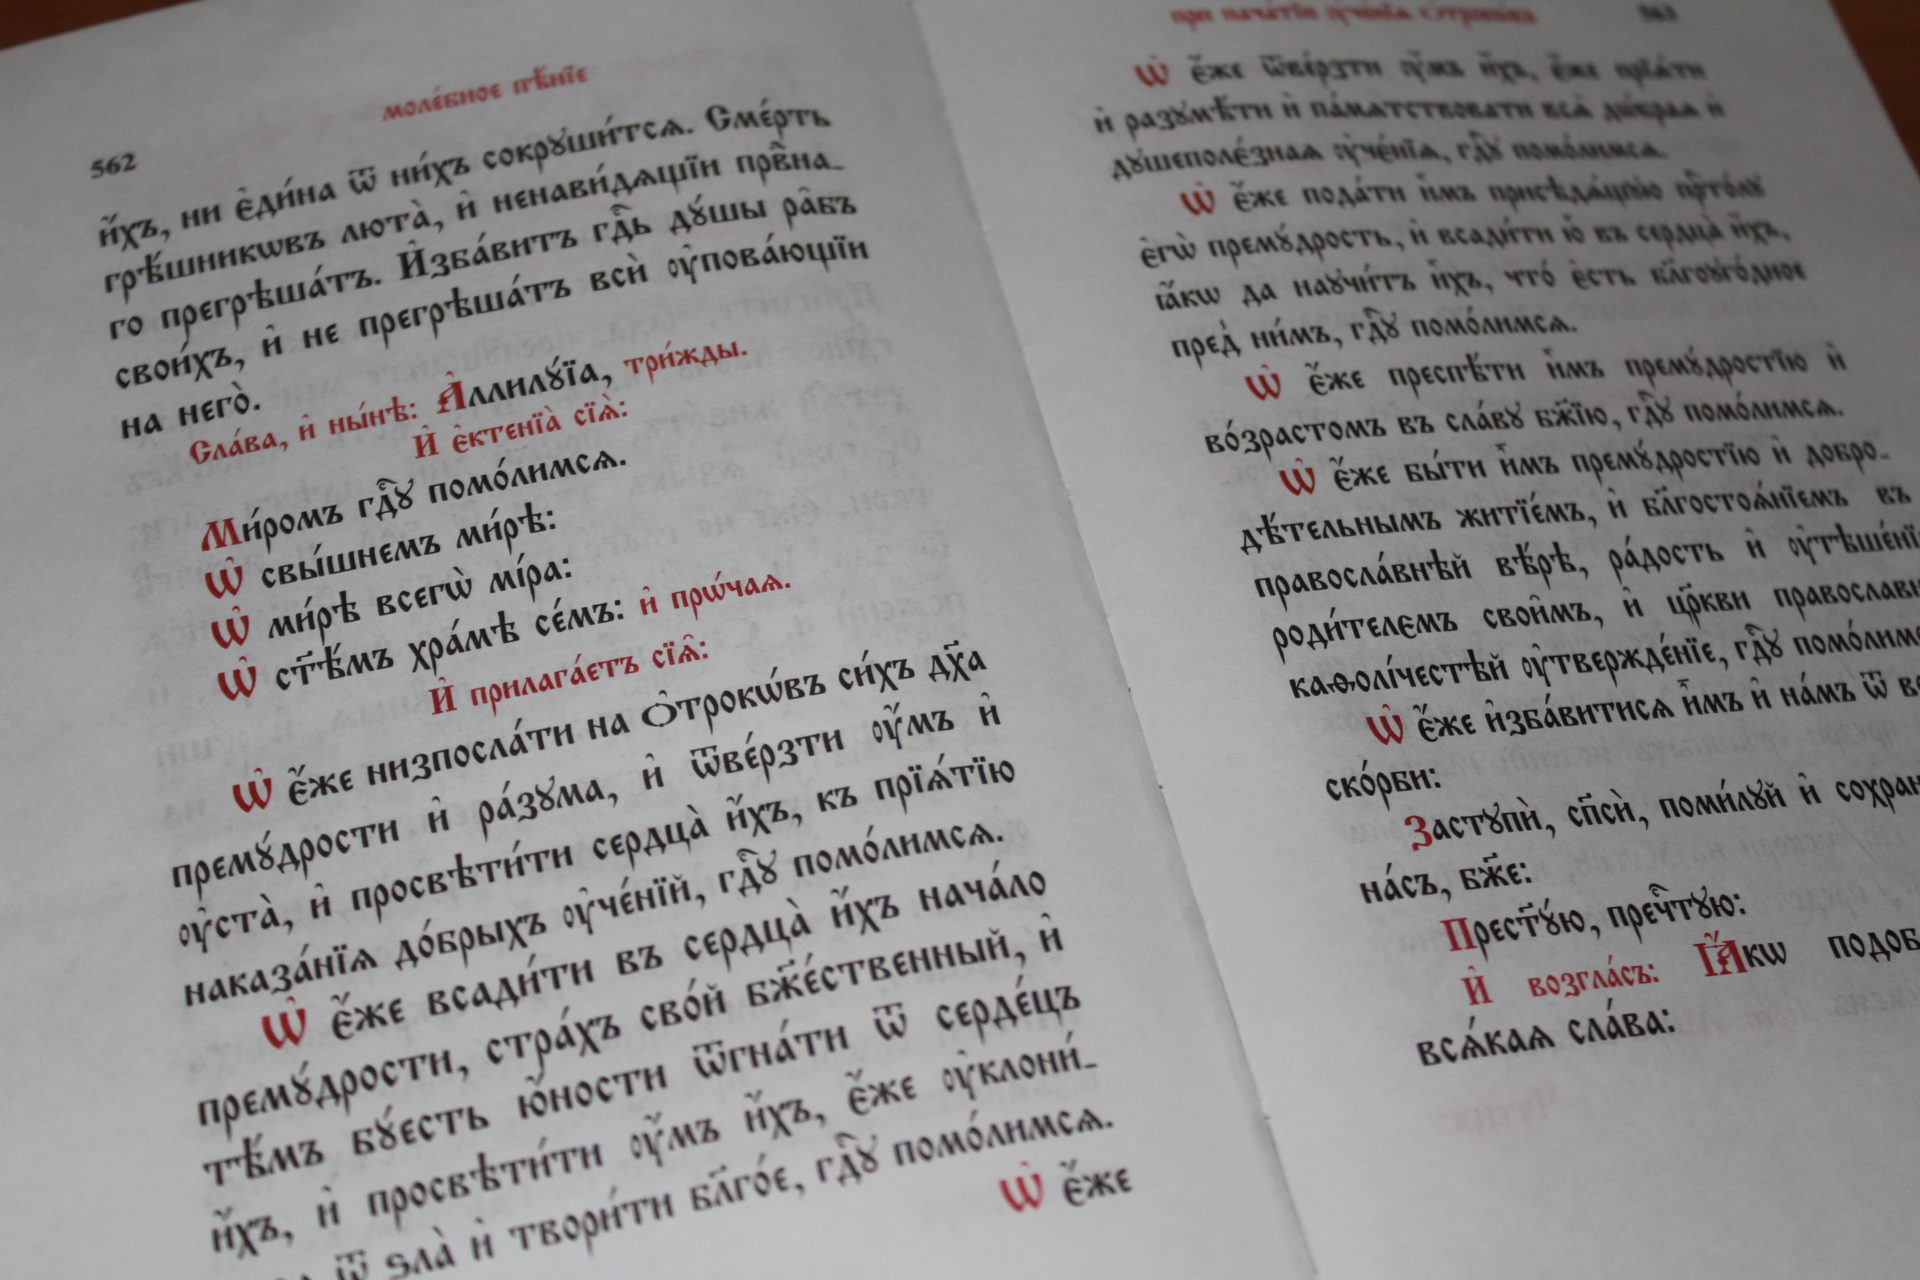 моле́бное пѣ́нїе
562
и҆́хъ, ни є҆ди́на ѿ ни́хъ сокрꙋши́тсѧ. Сме́рть
грѣ́шникѡвъ люта̀, и҆ ненави́дѧщїи првⷣна_
го прегрѣша́тъ. И҆зба́витъ гдⷭ҇ь дꙋ́шы ра̑бъ
свои́хъ, и҆ не прегрѣша́тъ всѝ ᲂу҆пова́ющїи
на него̀.
Сла́ва, и҆ ны́нѣ: А҆ллилꙋ́їа, три́жды.
И҆ є҆ктенїа̀ сїѧ̀:
Ми́ромъ гдⷭ҇ꙋ помо́лимсѧ.
Ѡ҆ свы́шнемъ ми́рѣ:
Ѡ҆ ми́рѣ всегѡ̀ мі́ра:
Ѡ҆ ст҃ѣ́мъ хра́мѣ се́мъ: и҆ прѡ́чаѧ.
И҆ прилага́етъ сїѧ̑:
Ѡ҆ є҆́же низпосла́ти на Ѻ҆трокѡ́въ си́хъ дх҃а
премꙋ́дрости и҆ ра́зꙋма, и҆ ѿве́рзти ᲂу҆́мъ и҆
ᲂу҆ста̀, и҆ просвѣти́ти сердца̀ и҆́хъ, къ прїѧ́тїю
наказа́нїѧ до́брыхъ ᲂу҆че́нїй, гдⷭ҇ꙋ помо́лимсѧ.
Ѡ҆ є҆́же всади́ти въ сердца̀ и҆́хъ нача́ло
премꙋ́дрости, стра́хъ сво́й бж҃е́ственный, и҆
тѣ́мъ бꙋ́есть ю҆́ности ѿгна́ти ѿ серде́цъ
и҆́хъ, и҆ просвѣти́ти ᲂу҆́мъ и҆́хъ, є҆́же ᲂу҆клони́_
ѿ ѕла̀ и҆ твори́ти бл҃го́е, гдⷭ҇ꙋ помо́лимсѧ.
Ѡ҆ є҆́же
при нача́тїи ᲂу҆че́нїѧ Ѻ҆трокѡ́въ
563
Ѡ҆ є҆́же ѿве́рзти ᲂу҆́мъ и҆́хъ, є҆́же прїѧ́ти
и҆ разꙋмѣ́ти и҆ па́мѧтствовати всѧ̑ дѡ́braѧ и҆
дꙋшеполе́знаѧ ᲂу҆че́нїѧ, гдⷭ҇ꙋ помо́лимсѧ.
Ѡ҆ є҆́же пода́ти и҆̀мъ присѣдѧ́щꙋю прⷭ҇то́лꙋ
є҆гѡ̀ премꙋ́дрость, и҆ всади́ти ю҆̀ въ сердца̀ и҆́хъ,
ꙗ҆́кѡ да наꙋчи́тъ и҆̀хъ, что́ є҆сть бл҃гоꙋго́дное
пред̾ ни́мъ, гдⷭ҇ꙋ помо́лимсѧ.
Ѡ҆ є҆́же преспѣ́ти и҆̀мъ премꙋ́дростїю и҆
во́зрастомъ въ сла́вꙋ бж҃їю, гдⷭ҇ꙋ помо́лимсѧ.
Ѡ҆ є҆́же бы́ти и҆̀мъ премꙋ́дростїю и҆ добро_
дѣ́тельнымъ житїе́мъ, и҆ бл҃госто́ѧнїемъ въ
правосла́внѣй вѣ́рѣ, ра́дость и҆ ᲂу҆тѣше́нї
роди́телємъ свои̑мъ, и҆ цр҃кви православн
каѳолі́честѣй ᲂу҆твержде́нїе, гдⷭ҇ꙋ помо́лимс
Ѡ҆ є҆́же и҆зба́витисѧ и҆̀мъ и҆ на́мъ ѿ вс
ско́рби:
Застꙋпѝ, сп҃сѝ, поми́лꙋй и҆ сохран
на́съ, бж҃е:
Прест҃ꙋ́ю, пречⷭ҇тꙋю:
И҆ возгла́съ: Ꙗ҆́кѡ подоб
всѧ́каѧ сла́ва: